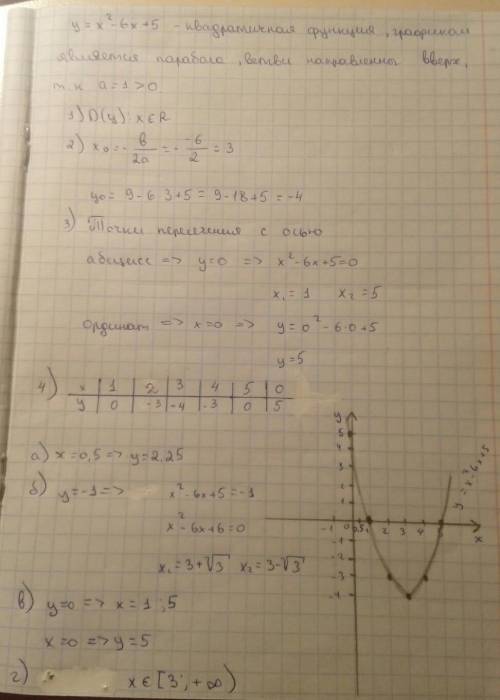 y = x² - 6x + 5 - квадратичная функция, графиком
является парабола, ветви направленны вверх,
т.к a = 1 > 0
1) D(y): x ∈ R
2) x₀ = - в/2a = - -6/2 = 3
y₀ = 9 - 6·3 + 5 = 9 - 18 + 5 = -4
3) Точки пересечения с осью
абсцисс => y = 0 => x² - 6x + 5 = 0
x₁ = 1 x₂ = 5
ординат => x = 0 => y = 0² - 6·0 + 5
y = 5
4) x | 1 | 2 | 3 | 4 | 5 | 0
y | 0 | -3 | -4 | -3 | 0 | 5
а) x = 0,5 => y = 2,25
б) y = -1 => x² - 6x + 5 = -1
x² - 6x + 6 = 0
x₁ = 3 + √3 x₂ = 3 - √3
в) y = 0 => x = 1 ; 5
x = 0 => y = 5
г) x ∈ [3 ; +∞)
y
5
4
3
2
1
-1 0 0,5 1 2 3 4 5 x
-1
-2
-3
-4
y = x² - 6x + 5